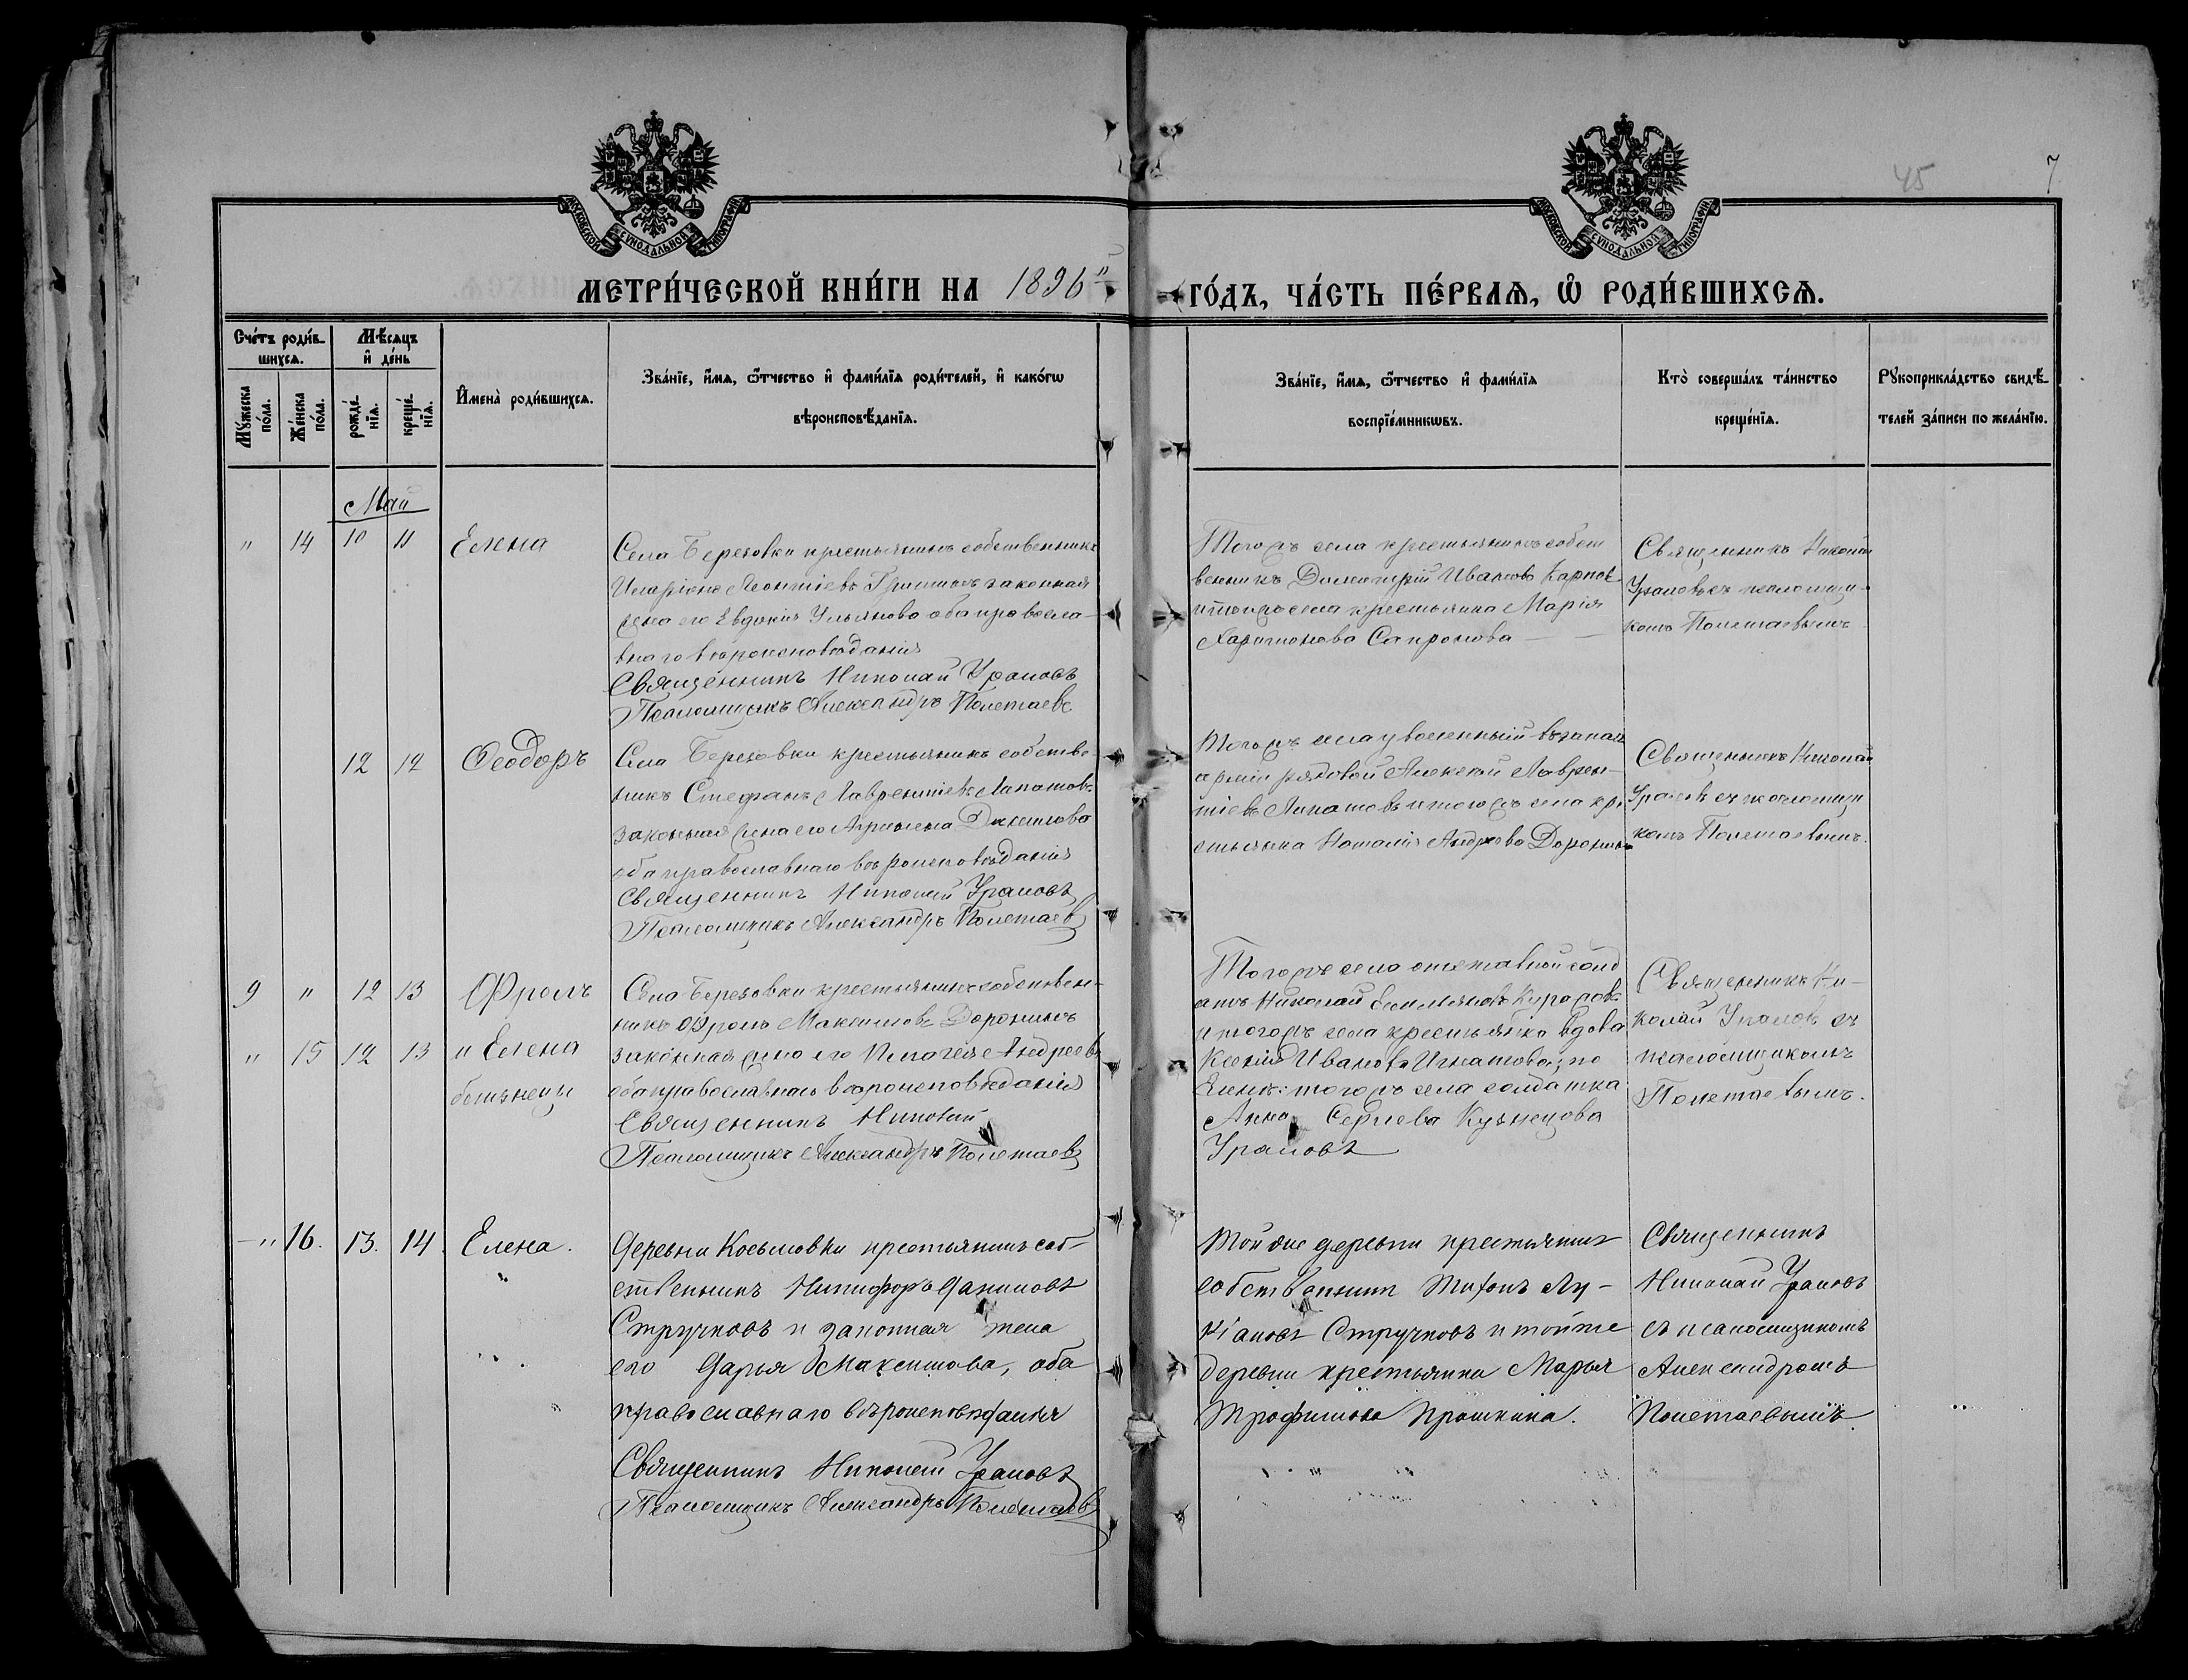 45
7
МОСКОВСКОЙ СУНОДАЛЬНОЙ ТИПОГРАФІИ
МОСКОВСКОЙ СУНОДАЛЬНОЙ ТИПОГРАФІИ
МЕТРИ́ЧЕСКОЙ КНИ́ГИ НА 1896 ГО́ДЪ, ЧА́СТЬ ПЕ́РВАѦ, Ѡ҆ РОДИ́ВШИХСѦ.
Сче́тъ роди́в-
шихсѧ.
Мꙋ́жеска
по́ла.
Же́нска
по́ла.
Мѣ́сѧцъ
и҆ де́нь
рожде́-
нїѧ.
креще́-
нїѧ.
И҆мена̀ роди́вшихсѧ.
Зва́нїе, и҆́мѧ, ѻ҆́тчество и҆ фами́лїѧ роди́телей, и҆ како́гѡ
вѣроисповѣ́данїѧ.
Зва́нїе, и҆́мѧ, ѻ҆́тчество и҆ фами́лїѧ
воспрїе́мникѡвъ.
Кто̀ соверша́лъ та́инство
креще́нїѧ.
Рꙋкоприкла́дство свидѣ́-
телей за́писи по жела́нїю.
Май
" 14 10 11 Елена
Села Березовки крестьянинъ собственникъ
Иларіонъ Леонтіевъ Гришинъ законная
жена его Евдокія Ульянова оба правосла-
внаго вѣроисповѣданія
Священникъ Николай Ураловъ
Псаломщикъ Александръ Полетаевъ
Тогожъ села крестьянинъ собст
венникъ Димитрій Ивановъ Карповъ
и тогожъ села крестьянка Марія
Харитонова Сапронова
Священникъ Николай
Ураловъ съ псаломщи-
комъ Полетаевымъ
12 12 Ѳеодоръ
Села Березовки крестьянинъ собстве
нникъ Стефанъ Лаврентіевъ Лапатовъ
законная жена его Агриппена Данилова
оба православнаго вѣроисповѣданія
Священникъ Николай Ураловъ
Псаломщикъ Александръ Полетаевъ
Тогожъ села уволенный въ запасъ
арміи рядовой Алексей Лаврен-
тіевъ Лапатовъ и тогожъ села кре
стьянка Наталія Андреева Доронина
Священникъ Николай
Ураловъ съ псаломщи
комъ Полетаевымъ.
9 " 12 13 Фролъ
" 15 12 13 и Елена
близнецы
Села Березовки крестьянинъ собственн-
никъ Фролъ Максимовъ Доронинъ
законная жена его Пелагея Андреева
оба православнаго вѣроисповѣданія
Священникъ Николай
Псаломщикъ Александръ Полетаевъ
Тогожъ села отставной солд
атъ Николай Емильяновъ
и тогожъ села крестьянка вдова
Ксенія Иванова Игнатова; по
Еленѣ: тогожъ села солдатка
Анна Сергѣева Кузнецова
Ураловъ
Священникъ Ни-
колай Ураловъ съ
псаломщикомъ
Полетаевымъ.
" 16. 13. 14. Елена.
Деревни Косьмовки крестьянинъ соб-
ственникъ Никифоръ Даниловъ
Стручковъ и законная жена
его Дарья Максимова, оба
православнаго вѣроисповѣданія
Священникъ Николай Ураловъ
Псаломщикъ Александръ Полетаевъ
Той же деревни крестьянинъ
собственникъ Тихонъ Лу-
кіановъ Стручковъ и тойже
деревни крестьянка Марья
Трофимова Прошкина.
Священникъ
Николай Ураловъ
съ псаломщикомъ
Александромъ
Полетаевымъ.